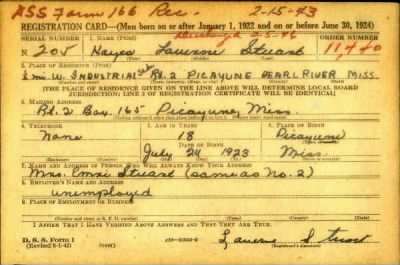 DSS Form 166 Rec 2-15-43
REGISTRATION CARD—(Men born on or after January 1, 1922 and on or before June 30, 1924)
SERIAL NUMBER 1. NAME (Print) ORDER NUMBER
N 205 Laverne Stuart 11,440
(First) (Middle) (Last)
2. PLACE OF RESIDENCE (Print)
W. INDUSTRIAL Rt. 2 PICAYUNE PEARL RIVER MISS
(THE PLACE OF RESIDENCE GIVEN ON THE LINE ABOVE WILL DETERMINE LOCAL BOARD
JURISDICTION; LINE 2 OF REGISTRATION CERTIFICATE WILL BE IDENTICAL)
3. MAILING ADDRESS
Rt. 2 Box 165 Picayune, Miss.
4. TELEPHONE 5. AGE IN YEARS 6. PLACE OF BIRTH
None 18 Picayune
DATE OF BIRTH
July 24 1923 Miss.
7. NAME AND ADDRESS OF PERSON WHO WILL ALWAYS KNOW YOUR ADDRESS
Mrs. Stuart (same as No. 2)
8. EMPLOYER'S NAME AND ADDRESS
unemployed
9. PLACE OF EMPLOYMENT OR BUSINESS
I AFFIRM THAT I HAVE VERIFIED ABOVE ANSWERS AND THAT THEY ARE TRUE.
D. S. S. Form 1
(Revised 6-1-42) Laverne Stuart
(Registrant's signature)